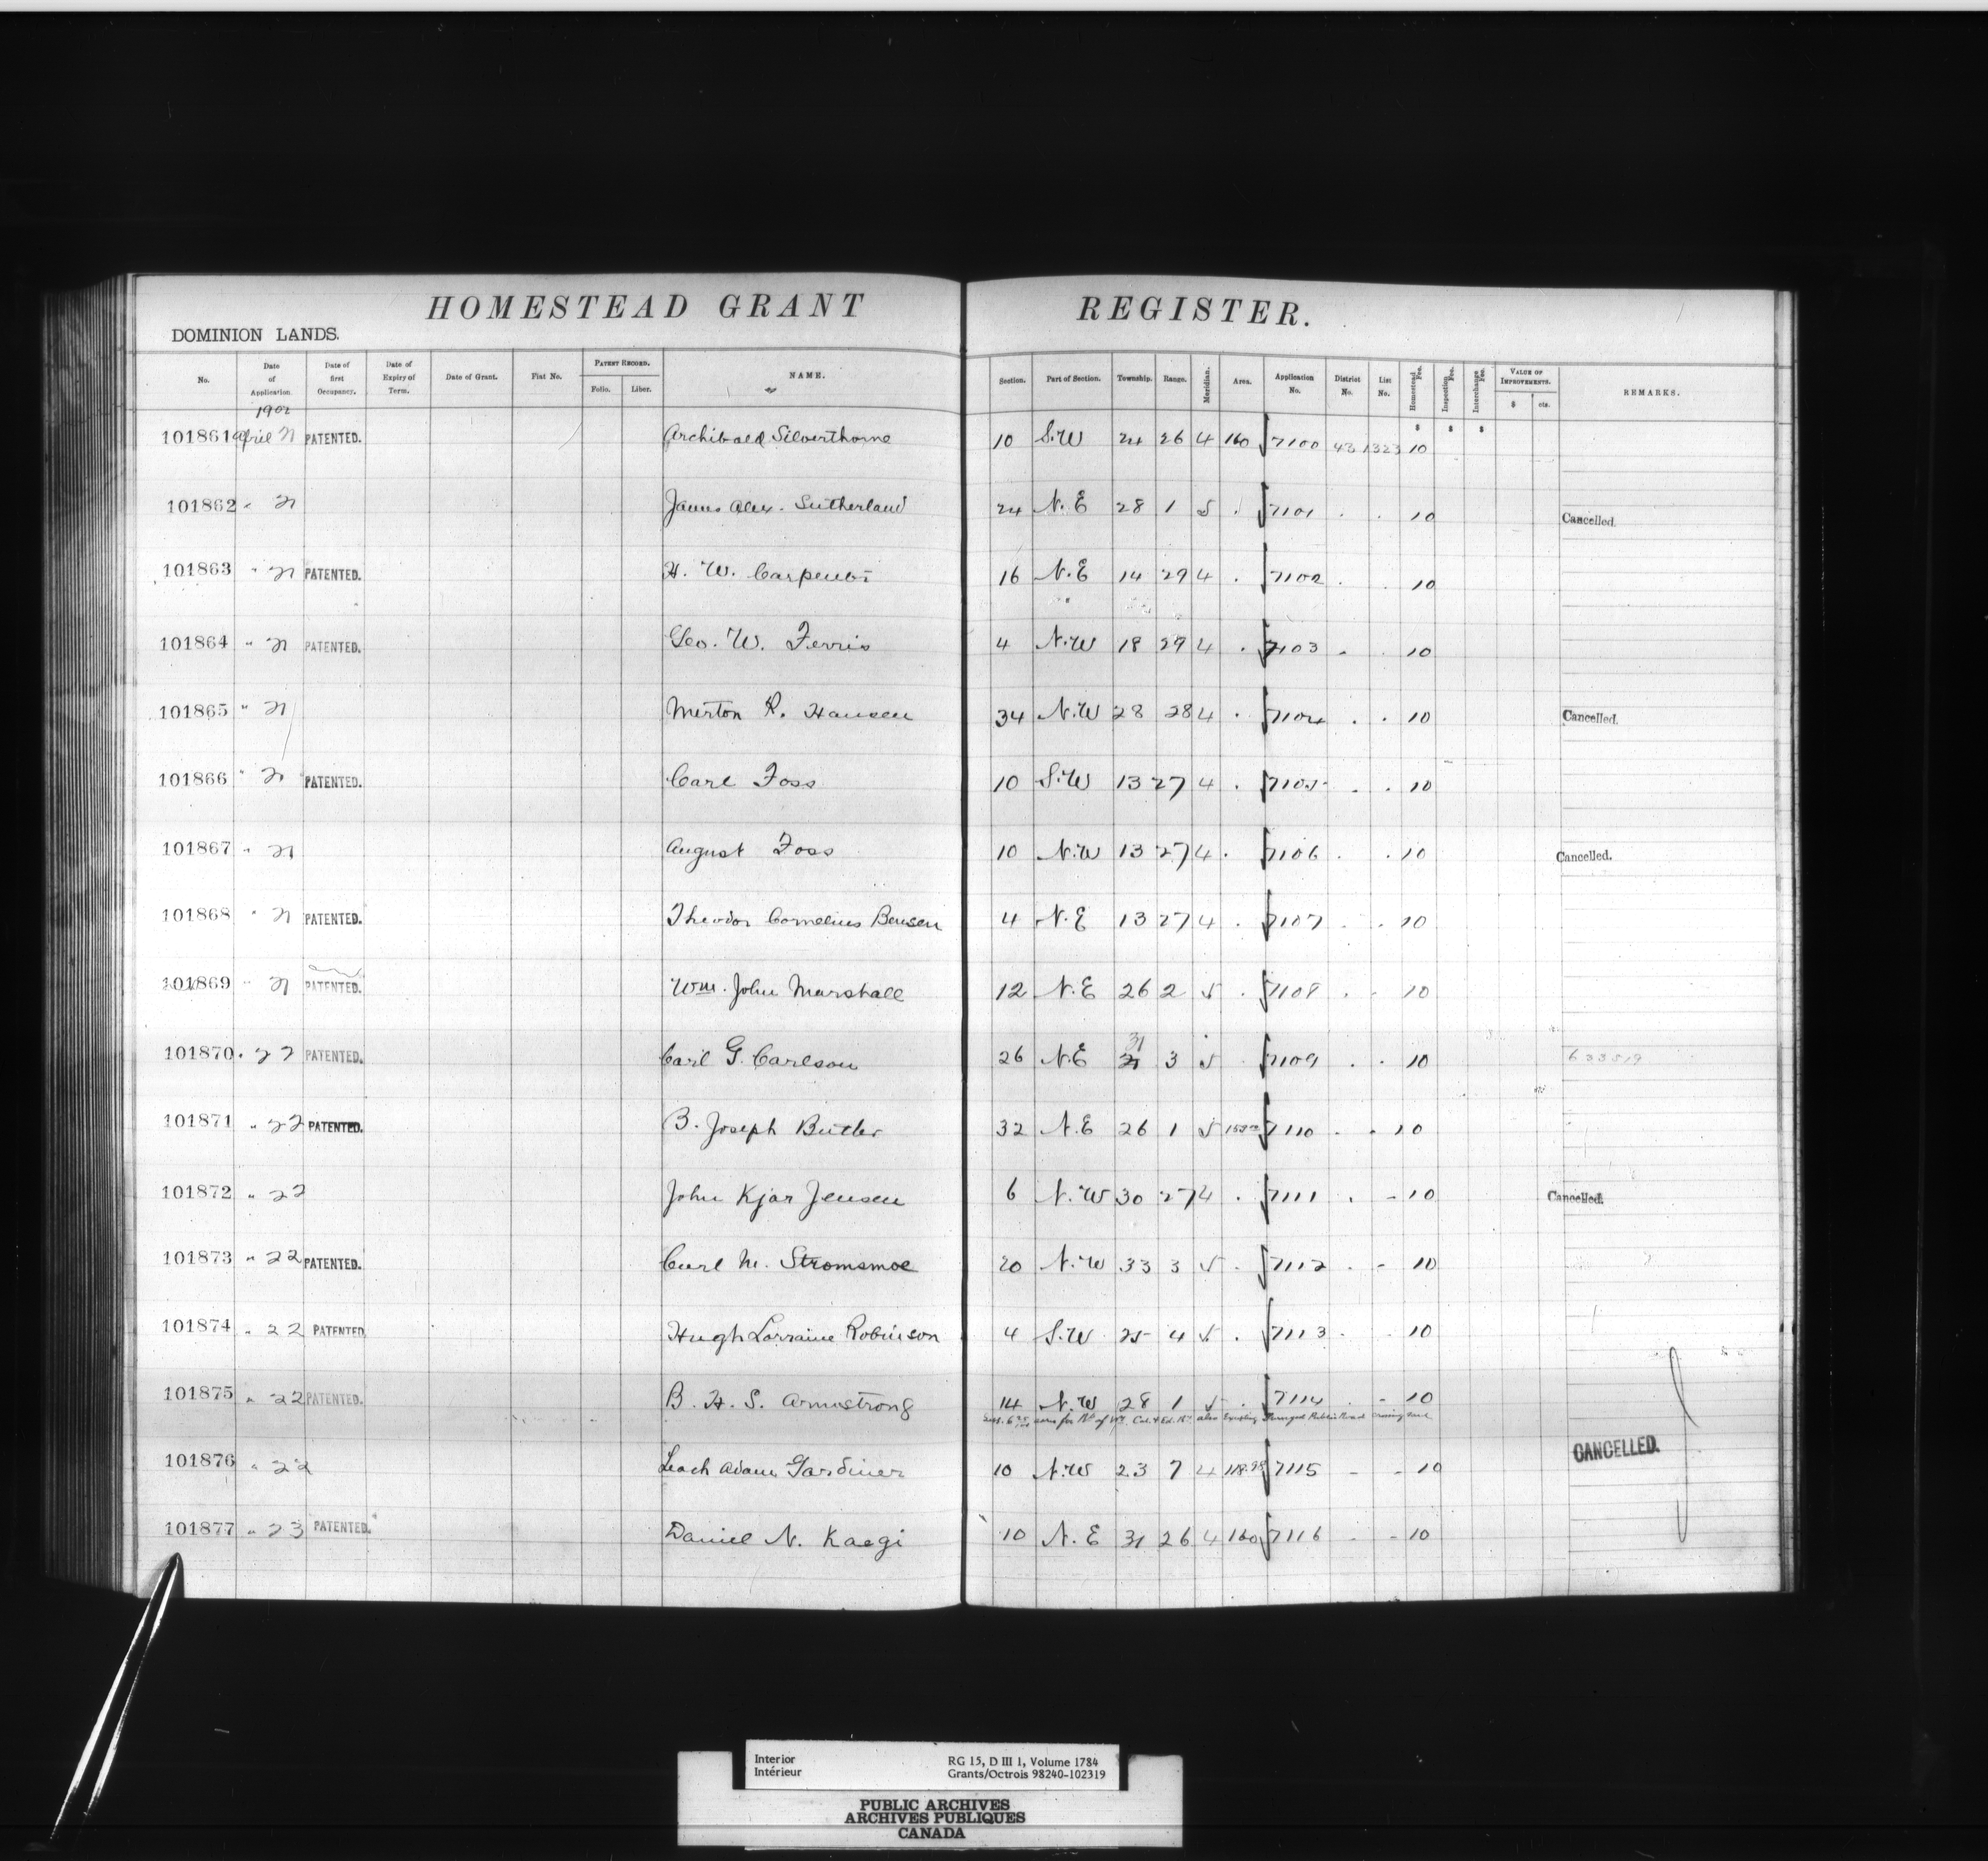 HOMESTEAD GRANT REGISTER.
DOMINION LANDS.
No. Date of Application. Date of first Occupancy. Date of Expiry of Term. Date of Grant. Fiat No. PATENT RECORD. Folio. Liber. NAME. Section. Part of Section. Township. Range. Meridian. Area. Application No. District No. List No. Homestead Fee. Inspection Fee. Interchange Fee. VALUE OF IMPROVEMENTS. $ cts. REMARKS.
1902 $ $ $
101861 April 21 PATENTED. Archibald Silverthorne 10 S.W 24 26 4 160 7100 43 1323 10
101862 " 21 James Alex. Sutherland 24 N.E 28 1 5 . 7101 . . 10 Cancelled.
101863 " 21 PATENTED. H. W. Carpenter 16 N.E 14 29 4 . 7102 . . 10
101864 " 21 PATENTED. Geo. W. Ferris 4 N.W 18 29 4 . 7103 . . 10
101865 " 21 Merton R. Hansen 34 N.W 28 28 4 . 7104 . . 10 Cancelled.
101866 " 21 PATENTED. Carl Foss 10 S.W 13 27 4 . 7105 . . 10
101867 " 21 August Foss 10 N.W 13 27 4 . 7106 . . 10 Cancelled.
101868 " 21 PATENTED. Theodor Cornelius Bensen 4 N.E 13 27 4 . 7107 . . 10
101869 " 21 PATENTED. Wm. John Marshall 12 N.E 26 2 5 . 7108 . . 10
101870 " 22 PATENTED. Carl G. Carlson 26 N.E 31 3 5 . 7109 . . 10 633519
101871 " 22 PATENTED. B. Joseph Butler 32 N.E 26 1 5 7110 . . 10
101872 " 22 John Kjar Jensen 6 N.W 30 27 4 . 7111 . - 10 Cancelled.
101873 " 22 PATENTED. Carl M. Stromsmoe 20 N.W 33 3 5 . 7112 . - 10
101874 " 22 PATENTED Hugh Lorraine Robinson 4 S.W 25 4 5 . 7113 . - 10
101875 " 22 PATENTED. B. H. S. Armstrong 14 N.W 28 1 5 . 7114 . - 10
acres for of Cal. & Ed. Ry also Public Road
101876 " 22 Leach Adam Gardiner 10 N.W 23 7 4 7115 - - 10 CANCELLED.
101877 " 23 PATENTED. Daniel N. Kaegi 10 N.E 31 26 4 160 7116 - - 10
Interior RG 15, D III 1, Volume 1784
Intérieur Grants/Octrois 98240-102319
PUBLIC ARCHIVES
ARCHIVES PUBLIQUES
CANADA